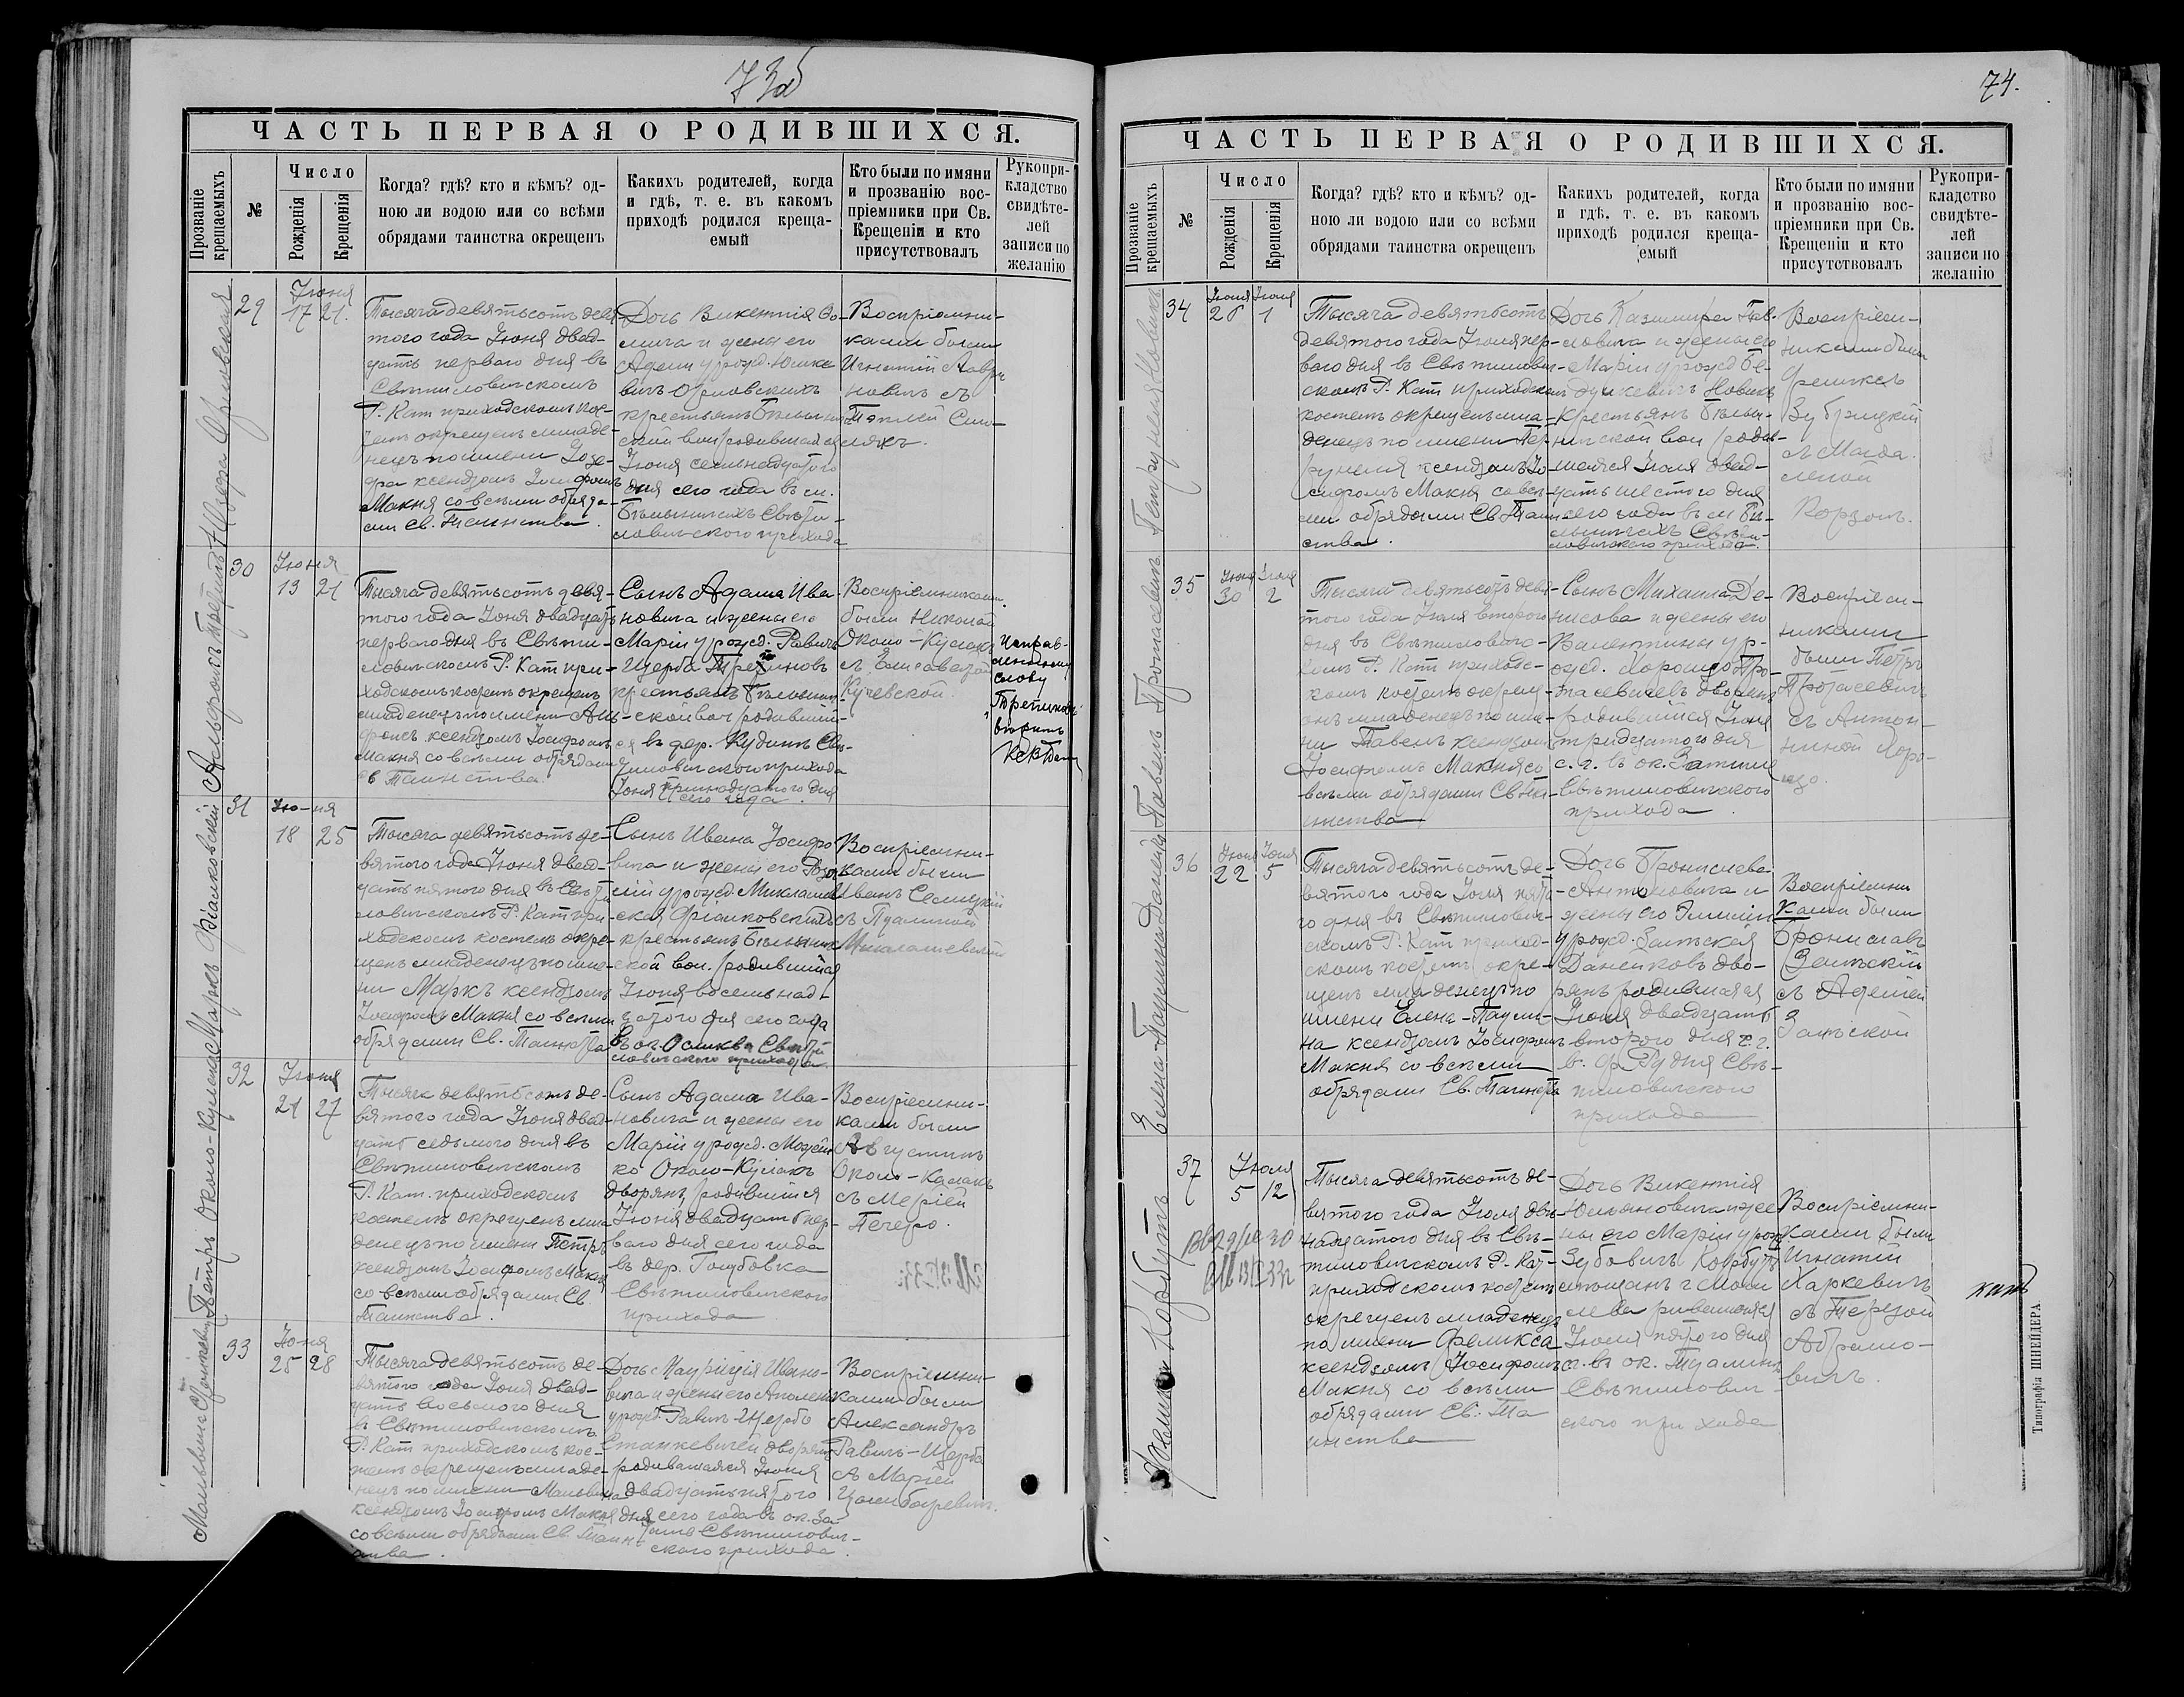 73об
ЧАСТЬ ПЕРВАЯ О РОДИВШИХСЯ.
Прозваніе крещаемыхъ
№
Число
Рожденія
Крещенія
Когда? гдѣ? кто и кѣмъ? од-
ною ли водою или со всѣми
обрядами таинства окрещенъ
Какихъ родителей, когда
и гдѣ, т. е. въ какомъ
приходѣ родился креща-
емый
Кто были по имяни
и прозванію вос-
пріемники при Св.
Крещеніи и кто
присутствовалъ
Рукопри-
кладство
свидѣте-
лей
записи по
желанію
Юзефа Орловская
29
Іюня
17 21.
Тысяча девятьсотъ девя-
того года Іюня двад-
цать перваго дня въ
Свѣтиловичскомъ
Р. Кат приходскомъ кос-
телѣ окрещенъ младе-
нецъ по имени Юзе-
фа ксендзомъ Іосифомъ
Макня со всѣми обряда-
ми Св. Таинства.
Дочь Викентія Θо-
мича и жены его
Адели урожд. Юшке
вичъ Орловскихъ
крестьянъ Бѣлынич
ской вол родившаяся
Іюня семьнадцатого
дня сего года въ м.
Бѣлыничахъ Свѣти-
ловичского прихода
Воспріемни-
ками были
Игнатій Лаври
новичъ съ
Теплей Сино-
лякъ.
Альфонсъ Трепишъ
30
Іюня
13 21
Тысяча девятьсотъ девя-
того года Іюня двадцать
перваго дня въ Свѣти-
ловичскомъ Р. Кат при-
ходскомъ костелѣ окрещенъ
младенецъ по имени Аль-
фонсъ ксендзомъ Іосифомъ
Макня со всѣми обрядами
Св Таинства.
Сынъ Адама Ива-
новича и жены его
Маріи урожд. Равичъ
Щерба Трепиновъ
крестьянъ Бѣлынич-
ской вол родившій-
ся въ дер. Кудинъ Свѣ-
тиловичского прихода
Іюня тринадцатого дня
сего года.
Воспріемниками
были Николай
Около-Кулакъ
съ Елисаветой
Кучевской.
Исправ-
ленному
слову
"Трепиновъ"
вѣрить
Марк Фіалковскій
31
Іюня
18 25
Тысяча девятьсотъ де-
вятого года Іюня двад-
цать пятого дня въ Свѣти
ловичскомъ Р. Кат при-
ходскомъ костелѣ окре-
щенъ младенецъ по име-
ни Маркъ ксендзомъ
Іосифомъ Макня со всѣми
обрядами Св. Таинства
Сынъ Ивана Іосифо
вича и жены его Розо-
ліи урожд. Миклашев
ская Фіалковскихъ
крестьянъ Бѣлынич
ской вол. родившійся
Іюня восемьнад-
цатого дня сего года
въ ок. Осликва Свѣти
ловичского прихода
Воспріемни-
ками были
Иванъ Селицкій
съ Пуалиной
Миклашевской
Петръ Около-Кулакъ
32
Іюня
21 27
Тысяча девятьсотъ де-
вятого года Іюня двад-
цать седьмого дня въ
Свѣтиловичскомъ
Р. Кат. приходскомъ
костелѣ окрещенъ мла
денецъ по имени Петръ
ксендзомъ Іосифомъ Макня
со всѣми обрядами Св.
Таинства.
Сынъ Адама Ива-
новича и жены его
Маріи урожд. Можей
ко Около-Кулакъ
дворянъ родившійся
Іюня двадцать пер-
ваго дня сего года
въ дер. Голубовка
Свѣтиловичского
прихода
Воспріемни-
ками были
Августинъ
Около-Кулакъ
съ Маріей
Печеро.
Мальвина Станкевичъ
33
Іюня
25 28
Тысяча девятьсотъ де-
вятого года Іюня двад-
цать восьмого дня
въ Свѣтиловичскомъ
Р. Кат приходскомъ кос-
телѣ окрещенъ младе-
нецъ по имени Мальвина
ксендзомъ Іосифомъ Макня
со всѣми обрядами Св. Таин
ства.
Дочь Маурыція Ивано-
вича и жены его Аполен
урожд. Равичъ-Щербо
Станкевичей дворянъ
родившаяся Іюня
двадцать пятого
дня сего года въ ок. За-
тишѣ Свѣтилович-
ского прихода.
Воспріемни-
ками были
Александръ
Равичъ-Щерба
съ Маріей
Цымбаревичъ.
74.
ЧАСТЬ ПЕРВАЯ О РОДИВШИХСЯ.
Прозваніе крещаемыхъ
№
Число
Рожденія
Крещенія
Когда? гдѣ? кто и кѣмъ? од-
ною ли водою или со всѣми
обрядами таинства окрещенъ
Какихъ родителей, когда
и гдѣ, т. е. въ какомъ
приходѣ родился креща-
емый
Кто были по имяни
и прозванію вос-
пріемники при Св.
Крещеніи и кто
присутствовалъ
Рукопри-
кладство
свидѣте-
лей
записи по
желанію
Петрунеля Новикъ
34
Іюня Іюля
26 1
Тысяча девятьсотъ
девятого года Іюля пер-
ваго дня въ Свѣтилович-
скомъ Р. Кат приходскомъ
костелѣ окрещенъ мла-
денецъ по имени Пет-
рунеля ксендзомъ Іо-
сифомъ Макня со всѣ-
ми обрядами Св Таин
ства.
Дочь Казимира Пав-
ловича и жены его
Маріи урожд Юс-
думкевичъ Новикъ
крестьянъ Бѣлы-
ничской вол родив-
шаяся Іюня двад-
цать шестого дня
сего года въ м Бѣ-
лыничахъ Свѣти-
ловичского прихода.
Воспріем-
никами были
Феликсъ
Зубрицкій
съ Магда
леной
Корзонъ.
Павелъ Протасевичъ
35
Іюня Іюля
30 2
Тысяча девятьсотъ девя-
того года Іюля второго
дня въ Свѣтилович-
скомъ Р. Кат приходс-
комъ костелѣ окрещ-
енъ младенецъ по име-
ни Павелъ ксендзомъ
Іосифомъ Макня со
всѣми обрядами Св Та-
инства
Сынъ Михаила Де-
нисова и жены его
Валентины ур-
ожд. Хорошо Про-
тасевичевъ дворянъ
родившійся Іюня
тридцатого дня
с. г. въ ок. Затише
Свѣтиловичского
прихода
Воспріем-
никами
были Петръ
Протасевичъ
съ Антон-
ниной Хоро-
що.
Елена-Паулина Данейко
36
Іюня Іюля
22 5
Тысяча девятьсотъ де-
вятого года Іюля пято-
го дня въ Свѣтилович-
скомъ Р. Кат приход-
скомъ костелѣ окре-
щенъ младенецъ по
имени Елена-Паули-
на ксендзомъ Іосифомъ
Макня со всѣми
обрядами Св. Таинства
Дочь Бронислава
Антоновича и
жены его Эмиліи
урожд. Заньская
Данейковъ дво-
рянъ родившаяся
Іюня двадцать
второго дня с. г.
в. ф Рудня Свѣ-
тиловичского
прихода
Воспріемни
ками были
Брониславъ
Заньскій
съ Аделей
Заньской
Фелиція Корбутъ
37
Іюля
5 12
Тысяча девятьсотъ де-
вятого года Іюля двѣ-
надцатого дня въ Свѣ-
тиловичскомъ Р. Кат-
приходскомъ костелѣ
окрещенъ младенецъ
по имени Феликса
ксендзомъ Іосифомъ
Макня со всѣми
обрядами Св. Та
инства
Дочь Викентія
Юльяновича и же
ны его Маріи урожд
Зубовичъ Корбутъ
мѣщанъ г Моги
лева родившаяся
Іюля пятого дня
с г. въ ок. Туалинъ
Свѣтилович-
ского прихода
Воспріемни-
ками были
Игнатій
Харкевичъ
съ Терезой
Абрамо-
вичъ.
Типографія ШНЕЙДЕРА